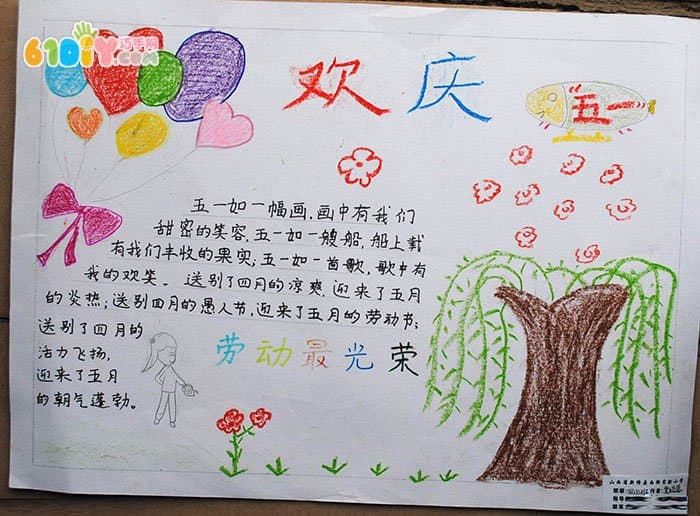 61DIY巧手网
.com
欢庆
五一
五一如一幅画,画中有我们
甜密的笑容,五一如一艘船,船上载
有我们丰收的果实;五一如一首歌,歌中有
我的欢笑。送别了四月的凉爽,迎来了五月
的炎热;送别四月的愚人节,迎来了五月的劳动节;
送别了四月的
活力飞扬,
迎来了五月
的朝气蓬勃。
劳动最光荣